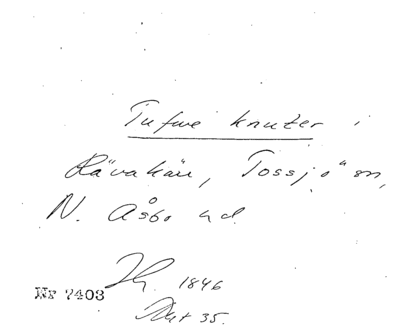 Tufwe knuter i
Rävakärr, Tossjö sn,
N. Åsbo hd.
1846
Nr 7403
Akt 35.